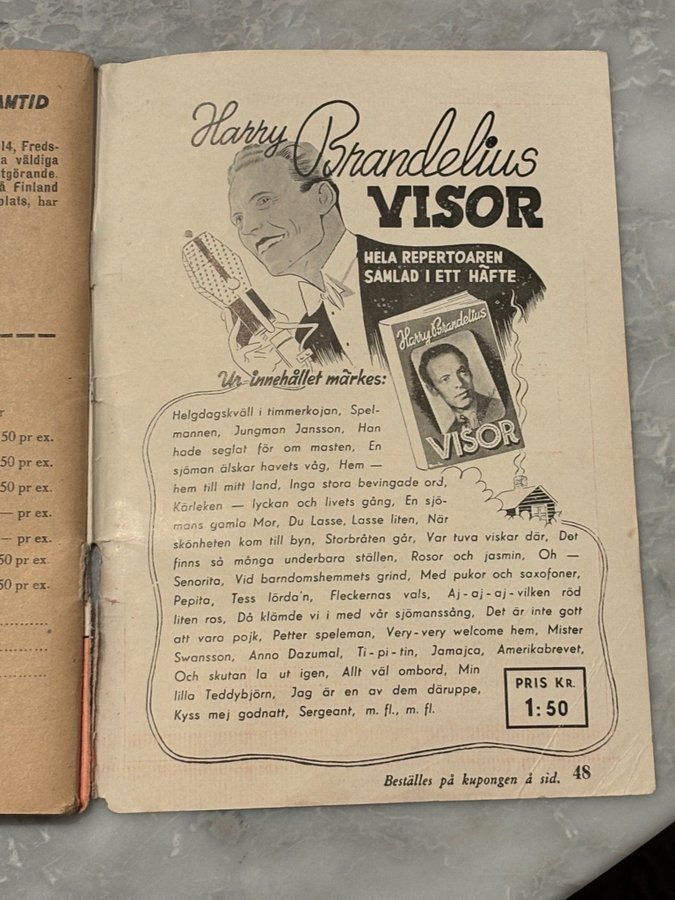 AMTID
14, Freds-
a väldiga
tgörande.
å Finland
plats, har
r
50 pr ex.
50 pr ex.
50 pr ex.
— pr ex.
— pr ex.
50 pr ex.
50 pr ex.
Harry Brandelius
VISOR
HELA REPERTOAREN
SAMLAD I ETT HÄFTE
Harry Brandelius
VISOR
Ur innehållet märkes:
Helgdagskväll i timmerkojan, Spel-
mannen, Jungman Jansson, Han
hade seglat för om masten, En
sjöman älskar havets våg, Hem —
hem till mitt land, Inga stora bevingade ord,
Kärleken — lyckan och livets gång, En sjö-
mans gamla Mor, Du Lasse, Lasse liten, När
skönheten kom till byn, Storbråten går, Var tuva viskar där, Det
finns så många underbara ställen, Rosor och jasmin, Oh —
Senorita, Vid barndomshemmets grind, Med pukor och saxofoner,
Pepita, Tess lörda'n, Fleckernas vals, Aj-aj-aj-vilken röd
liten ros, Då klämde vi i med vår sjömanssång, Det är inte gott
att vara pojk, Petter speleman, Very-very welcome hem, Mister
Swansson, Anno Dazumal, Ti-pi-tin, Jamajca, Amerikabrevet,
Och skutan la ut igen, Allt väl ombord, Min
lilla Teddybjörn, Jag är en av dem däruppe,
Kyss mej godnatt, Sergeant, m. fl., m. fl.
PRIS KR.
1:50
Beställes på kupongen å sid. 48